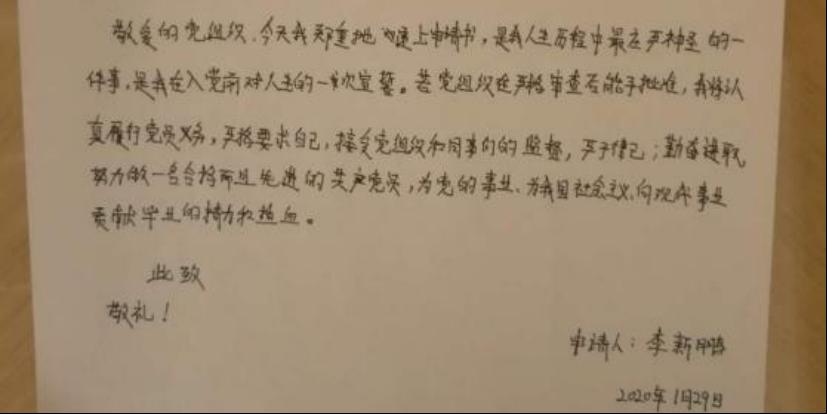 敬爱的党组织，今天我郑重地递上申请书，是我人生历程中最庄严神圣的一
件事，是我在入党前对人生的一次宣誓。若党组织在严格审查后能予批准，我将认
真履行党员义务，严格要求自己，接受党组织和同事们的监督，严于律己；勤奋进取
努力做一名合格而且先进的共产党员，为党的事业、为我国社会主义 现代事业
贡献毕生的精力和热血。
此致
敬礼！
申请人：李新
2020年1月29日